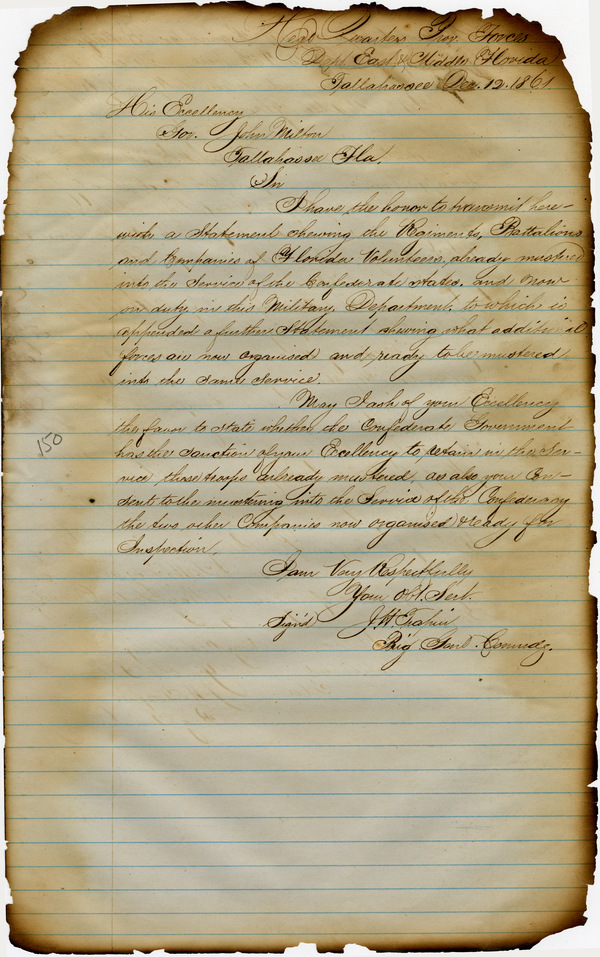 Head Quarters Prov. Forces
Dept East & Middle Florida
Tallahassee Dec. 12. 1861
His Excellency
Gov. John Milton
Tallahassee Fla.
Sir
I have the honor to transmit here-
with a Statement shewing the Regiments, Battalions
and Companies of Florida Volunteers, already mustered
into the Service of the Confederate States, and now
on duty in this Military Department, to which is
appended a further Statement shewing what additional
forces are now organised and ready to be mustered
into the same Service.
May I ask of your Excellency
the favor to state whether the Confederate Government
has the sanction of your Excellency to retain in the Ser-
vice those troops already mustered, as also your Con-
sent to the mustering into the Service of the Confederacy
the two other Companies now organised & ready for
Inspection.
150
I am Very Respectfully
Your Obt. Servt.
Sign'd J. H. Trapier
Brig Genl. Commdg.